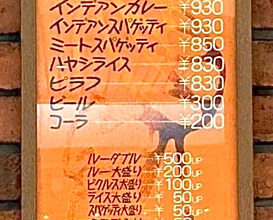 インデアンカレー ¥930
インデアンスパゲッティ ¥930
ミートスパゲッティ ¥850
ハヤシライス ¥830
ピラフ ¥830
ビール ¥300
コーラ ¥200
ルーダブル ¥500UP
ルー大盛り ¥200UP
ピクルス大盛り ¥100UP
ライス大盛り ¥50UP
スパゲッティ大盛り ¥50UP